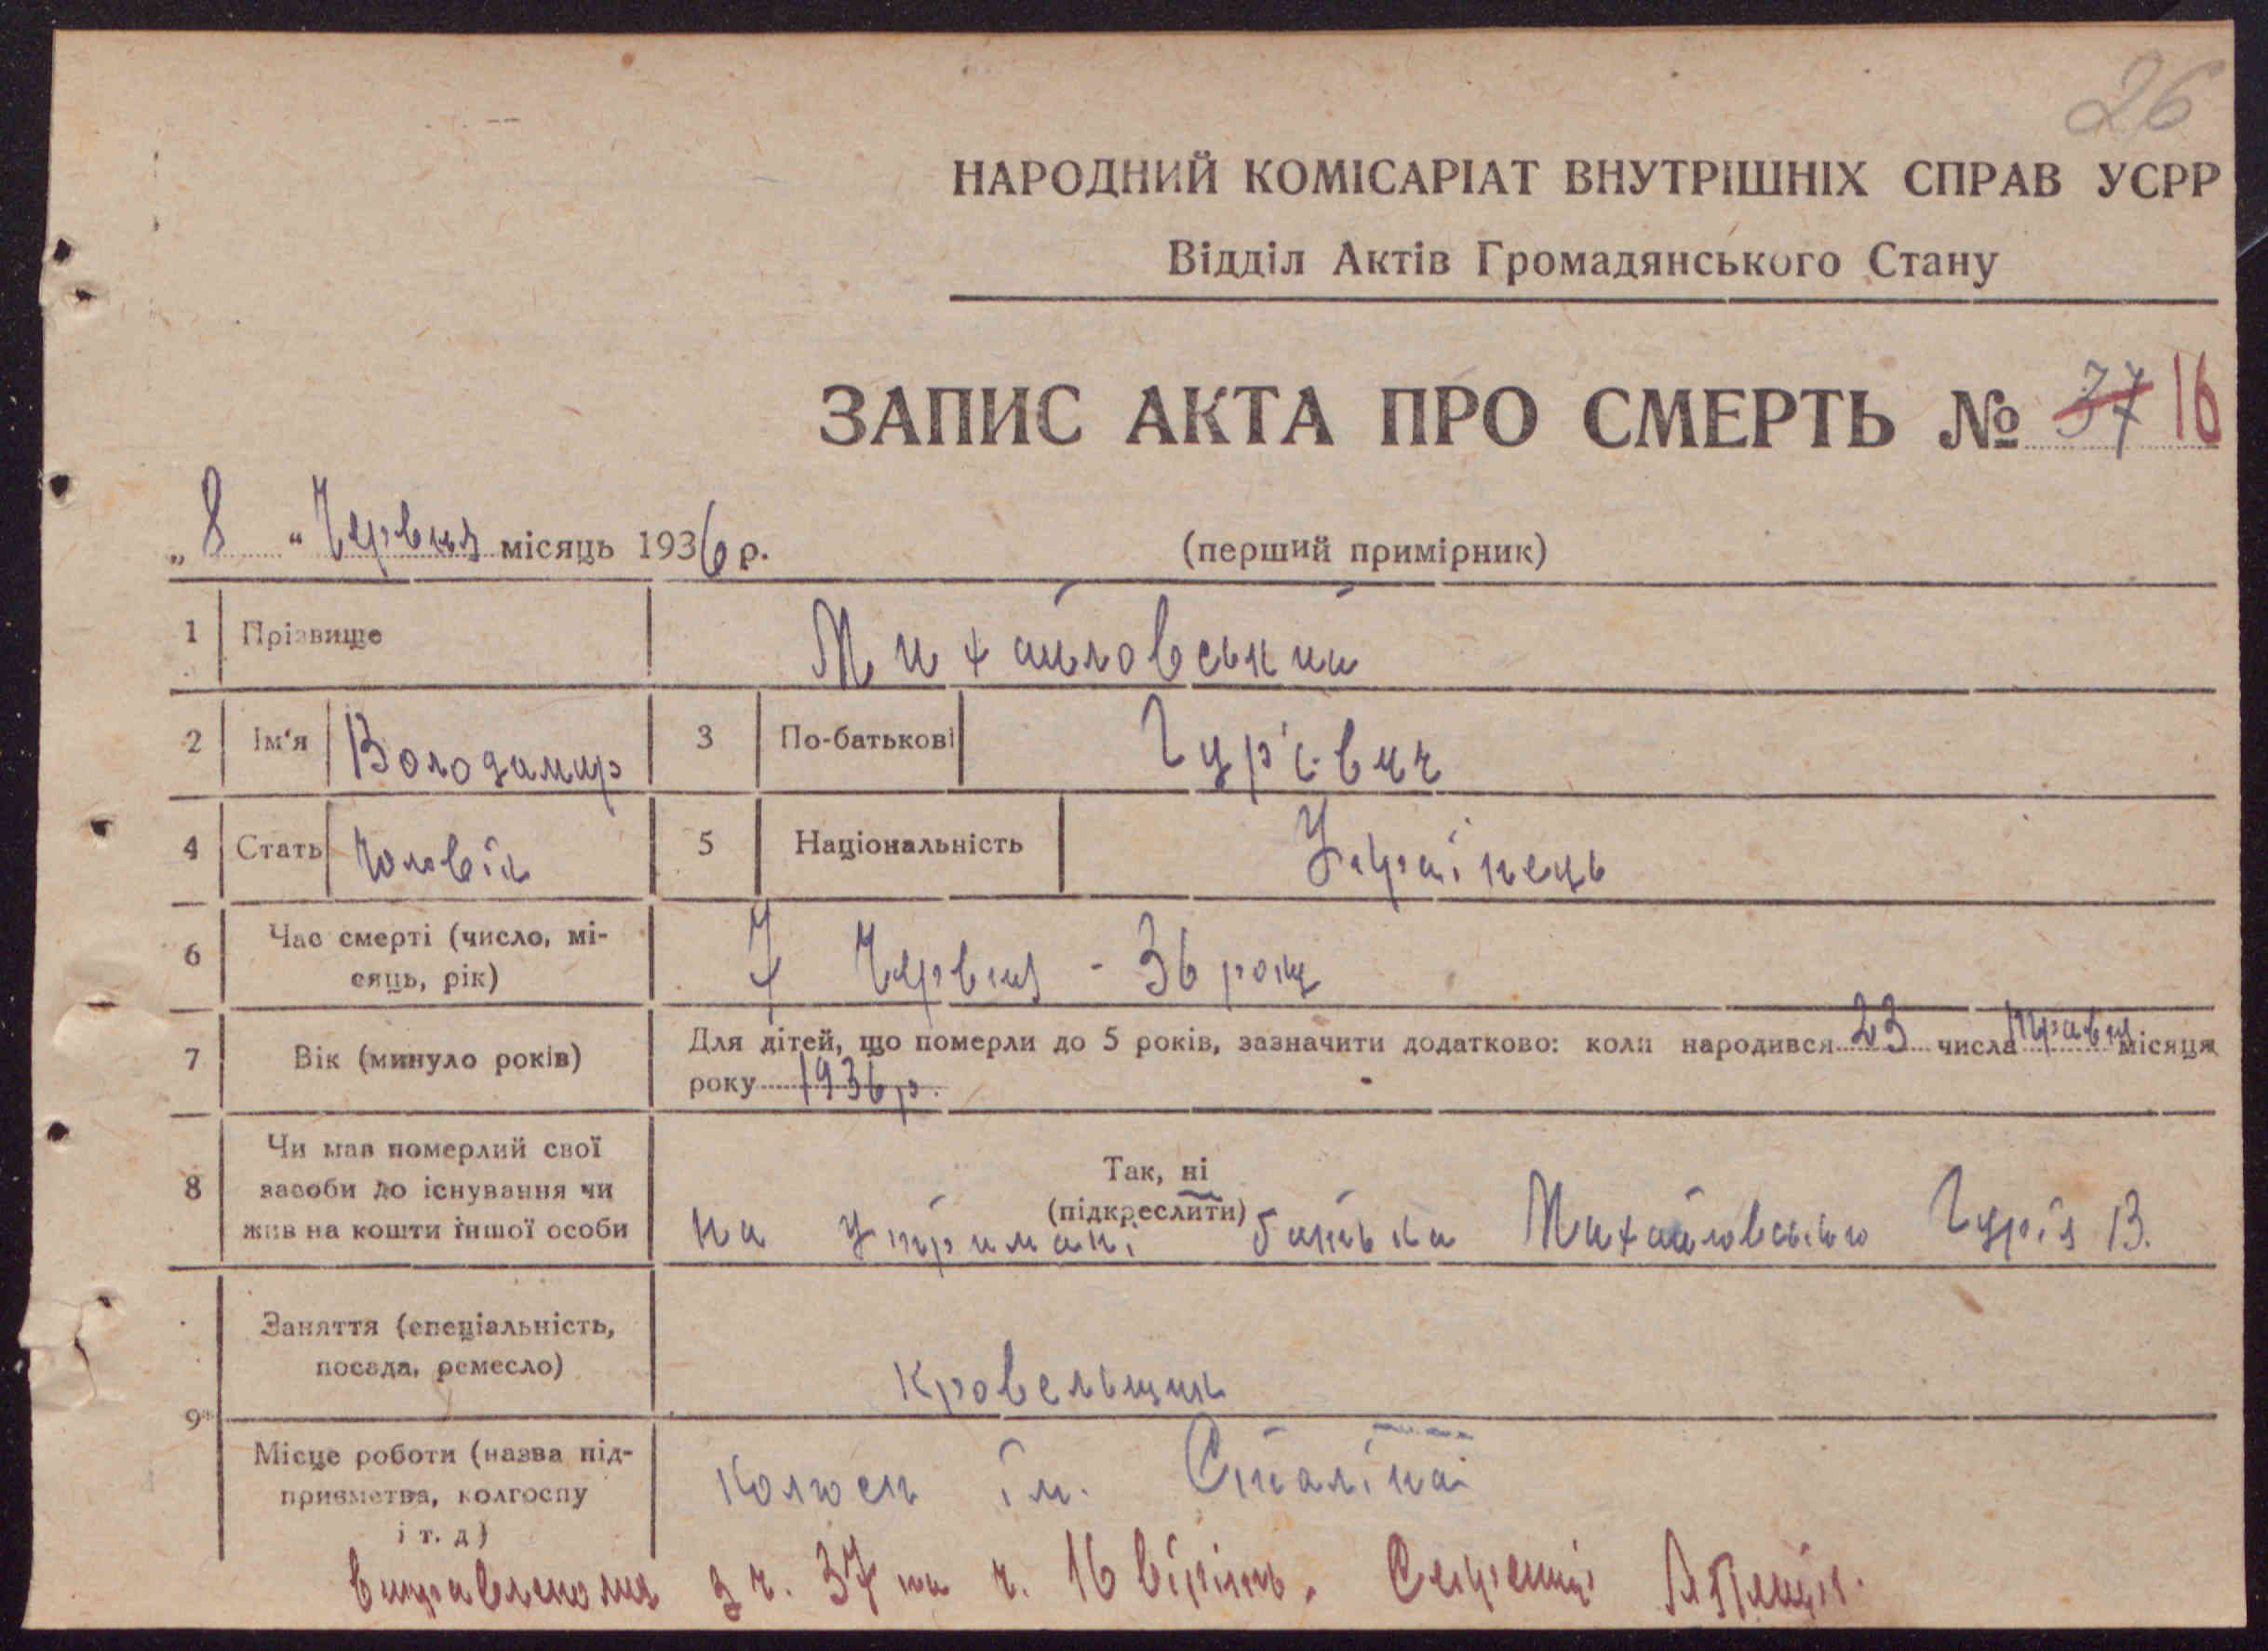 26
НАРОДНИЙ КОМІСАРІАТ ВНУТРІШНІХ СПРАВ УСРР
Відділ Актів Громадянського Стану
ЗАПИС АКТА ПРО СМЕРТЬ № 37 16
„8" Червня місяць 1936 р.
(перший примірник)
1 Прізвище Михайловський
2 Ім'я Володимир 3 По-батькові Гур'євич
4 Стать Чоловік 5 Національність Українець
6 Час смерті (число, мі-
сяць, рік) 7 Червня - 36 року
7 Вік (минуло років) Для дітей, що померли до 5 років, зазначити додатково: коли народився 23 числа травня місяця
року 1936 р.
8 Чи мав померлий свої
засоби до існування чи
жив на кошти іншої особи
Так, ні
(підкреслити)
на утримані батька Михайловського Гурія В.
9 Заняття (спеціальність,
посада, ремесло) Кровельщик
Місце роботи (назва під-
приємства, колгоспу
і т. д) Колгосп ім. Сталіна
з ч. 37 на ч. 16 вірить.